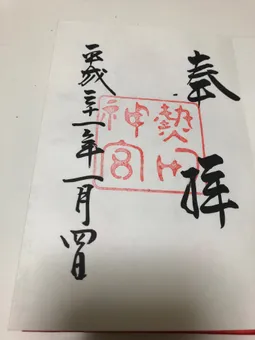 奉拝
熱田神宮
平成三十一年一月四日